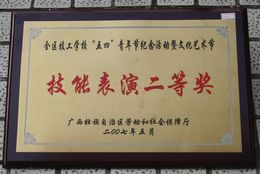 全区技工学校“五四”青年节纪念活动暨文化艺术节
技能表演二等奖
广西壮族自治区劳动和社会保障厅
二00七年五月